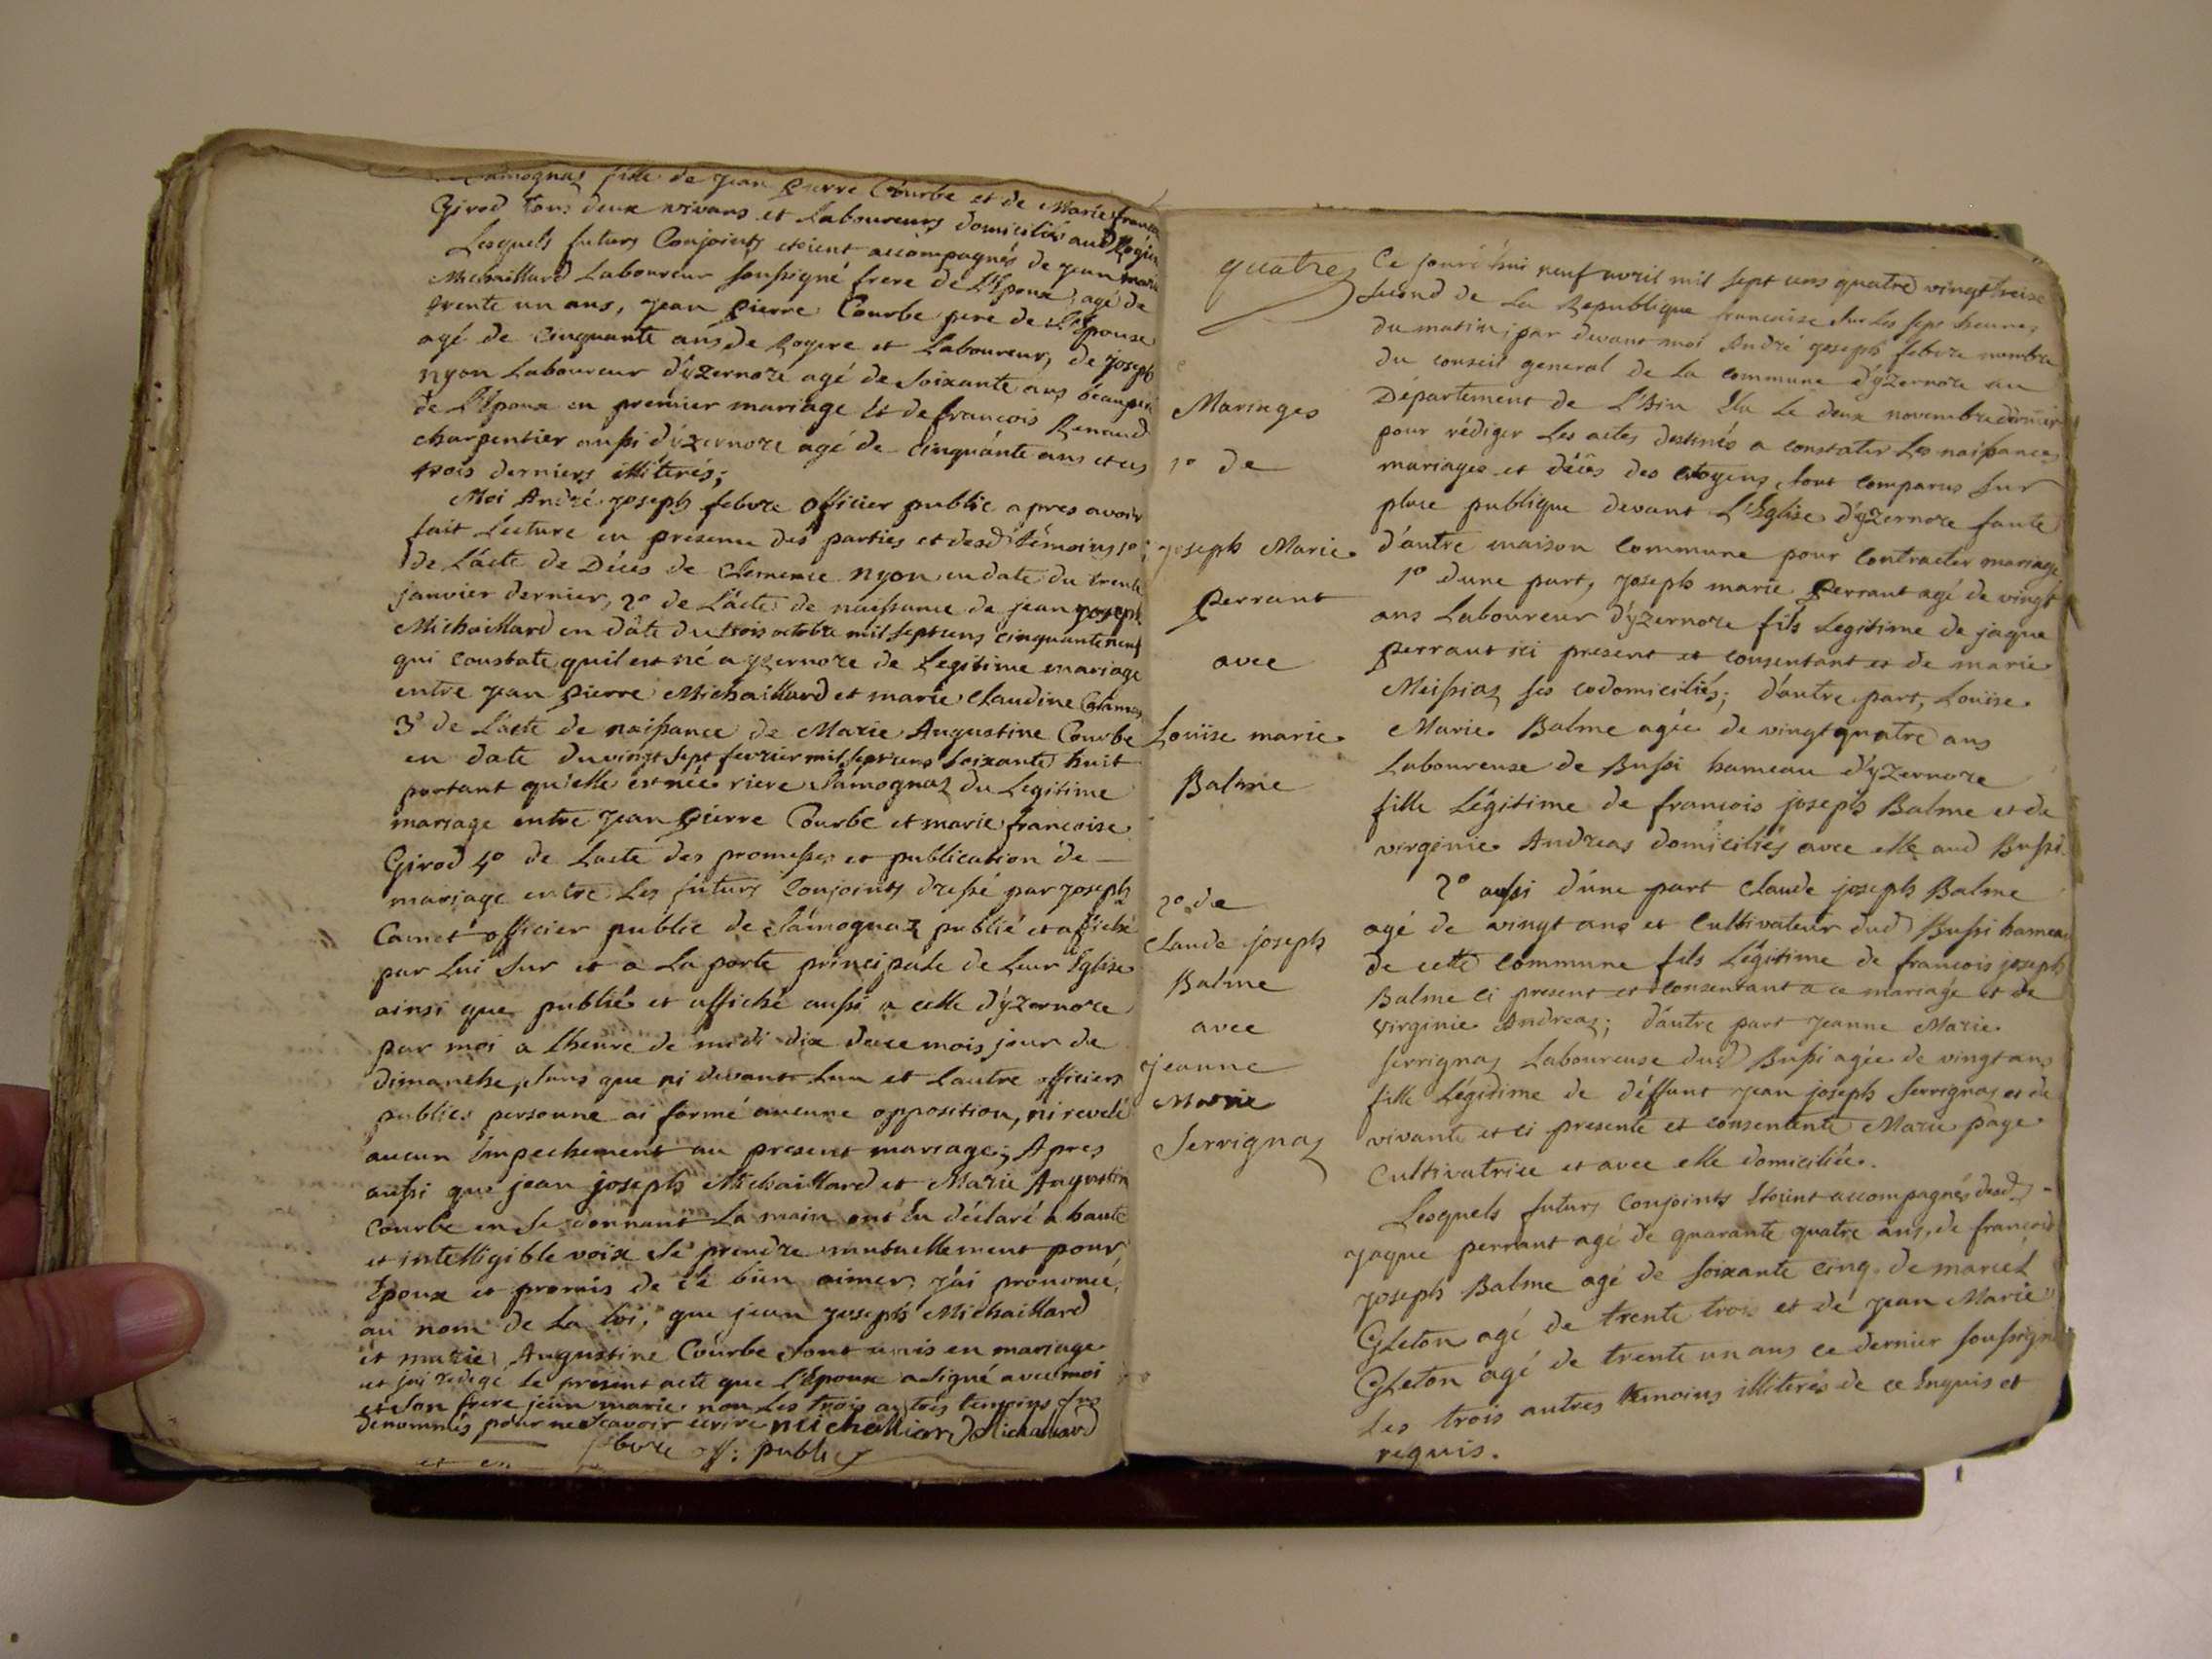 Samognaz fille de jean pierre Courbe et de Marie francoise
Girod tous deux vivans et Laboureurs domiciliés aud Rogire
Lesquels futurs Conjoints etoient accompagnés de jean marie
Michaillard Laboureur soussigné frere de L'Epoux, agé de
trente un ans, jean pierre Courbe pere de L'Epouse
agé de cinquante ans de Rogere et Laboureur, de joseph
nyon Laboureur d'yzernore agé de soixante ans beaupere
de L'Epoux en premier mariage et de francois Renaud
charpentier aussi d'yzernore agé de cinquante ans et ces
trois derniers illiterés;
Moi André joseph febvre officier public apres avoir
fait Lecture en presence des parties et desd témoins 1o
de L'acte de Décés de Clemence nyon en date du trente
janvier dernier, 2o de L'acte de naissance de jean joseph
Michaillard en date du trois octobre mil sept cens cinquante neuf
qui constate quil est né a yzernore de Legitime mariage
entre jean pierre Michaillard et marie claudine
3o de L'acte de naissance de Marie Augustine Courbe
en date du vingt sept fevrier mil sept cens soixante huit
portant qu'elle est née riere Samognaz du Legitime
mariage entre jean pierre Courbe et marie francoise
Girod 4o de L'acte des promesses et publication de
mariage entre Les futurs Conjoints dressé par joseph
Carnet officier public de Samognaz publié et affiché
par Lui sur et a La porte principale de Leur Eglise
ainsi que publié et affiché aussi a celle d'yzernore
par moi a L'heure de midi dix de ce mois jour de
dimanche, sans que ni devant Lun et Lautre officiers
publics personne ai formé aucune opposition, ni revelé
aucun impechement au present mariage; Apres
aussi que jean joseph Michaillard et Marie Augustin
Courbe en se donnant La main ont eu déclaré a haute
et intelligible voix se prendre mutuellement pour
Epoux et promis de se bien aimer, j'ai prononcé
au nom de La loi, que jean joseph Michaillard
et marie Augustine Courbe sont unis en mariage
et j'ai redigé Le present acte que L'Epoux a signé avec moi
et son frere jean marie non Les trois autres temoins
denommés pour ne scavoir ecrire michalliard Michaillard
febvre off: public
quatre
Mariages
1o de
joseph Marie
perrant
avec
Loüise marie
Balme
2o de
Claude joseph
Balme
avec
jeanne
Marie
Serrignaz
Ce jourd'hui neuf avril mil sept cens quatre vingt treize
second de La Republique francaise sur Les sept heures
du matin, par devant moi André joseph febvre membre
du conseil general de La commune d'yzernore au
Département de L'Ain Elu Le deux novembre dernier
pour rédiger Les actes destinés a constater Les naissances
mariages et décès des citoyens, sont comparus sur
place publique devant L'Eglise d'yzernore faute
d'autre maison commune pour contracter mariage
1o dune part, joseph marie perrant agé de vingt
ans Laboureur d'yzernore fils Legitime de jaque
perrant ici present et consentant et de marie
Meissiaz ses codomiciliés; d'autre part, Louise
Marie Balme agée de vingt quatre ans
Laboureuse de Bussi hameau d'yzernore
fille Légitime de francois joseph Balme et de
virginie Andreas domiciliés avec elle aud Bussi.
2o aussi d'une part Claude joseph Balme
agé de vingt ans et Cultivateur dud Bussi hameau
de cette commune fils Légitime de francois joseph
Balme ci present et consentant a ce mariage et de
virginie Andreaz; d'autre part jeanne Marie
Serrignaz Laboureuse dud Bussi agée de vingt ans
fille Légitime de déffunt jean joseph Serrignaz et de
vivante et ci presente et consentente Marie page
Cultivatrice et avec elle domiciliée.
Lesquels futurs conjoints étoint accompagnés desd
jaque perrant agé de quarante quatre ans, de francois
joseph Balme agé de soixante cinq. de marcel
Gleton agé de trente trois et de jean Marie
Gleton agé de trente un ans ce dernier soussigné
Les trois autres temoins illiterés de ce Enquis et
requis.